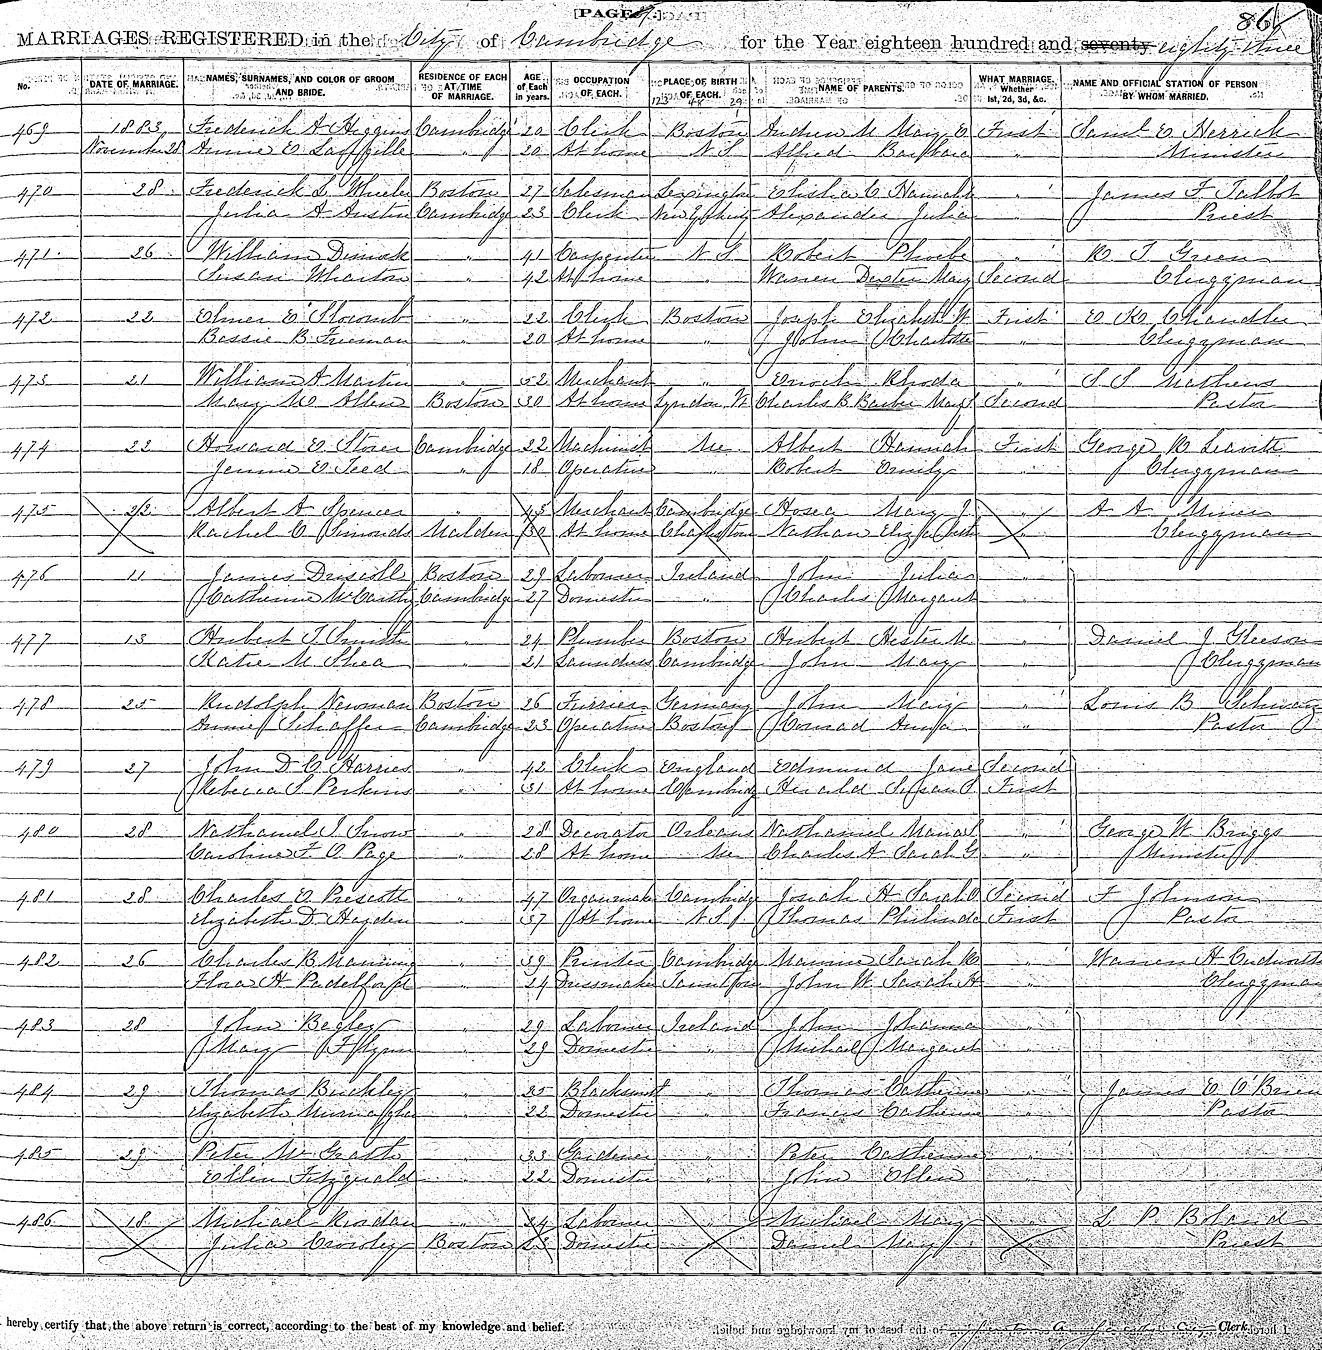 [PAGE]
86
MARRIAGES REGISTERED in the City of Cambridge for the Year eighteen hundred and seventy eighty three
No. DATE OF MARRIAGE. NAMES, SURNAMES, AND COLOR OF GROOM AND BRIDE. RESIDENCE OF EACH AT TIME OF MARRIAGE. AGE of Each in years. OCCUPATION OF EACH. PLACE OF BIRTH OF EACH. NAME OF PARENTS. WHAT MARRIAGE, Whether 1st, 2d, 3d, &c. NAME AND OFFICIAL STATION OF PERSON BY WHOM MARRIED.
123 48 29
469 1883 Frederick A Higgins Cambridge 20 Clerk Boston Andrew M Mary E First Saml E Herrick
November 28 Annie E " 20 At home N S Alfred Barbara " Minister
470 28 Frederick L Wheeler Boston 27 Salesman Lexington Elisha C Hannah " James F Talbot
Julia A Austin Cambridge 23 Clerk Alexander Julia " Priest
471 26 William Dimick " 41 Carpenter N S Robert Phoebe " R T Green
Susan Wharton " 42 At home " Warren Dexter Mary Second Clergyman
472 22 Elmer E Slocomb " 22 Clerk Boston Joseph Elizabeth W First E K Chandler
Bessie B Freeman " 20 At home " John Charlotte " Clergyman
473 21 William A Martin " 52 Merchant " Enoch Rhoda " S S Mathews
Mary M Allen Boston 30 At home Lyndon Vt Charles B Barber Mary S Second Pastor
474 22 Howard E Storer Cambridge 22 Machinist Me Albert Hannah First George B Leavitt
Jennie E Teed " 18 Operative " Robert Emily " Clergyman
475 22 Albert A Spencer " 45 Merchant Cambridge Hosea Mary J " A A Miner
Rachel C Simonds Malden 30 At home Charlestown Nathan Eliza Ruth " Clergyman
476 11 James Driscoll Boston 29 Laborer Ireland John Julia "
Catherine McCarthy Cambridge 27 Domestic " Charles Margaret "
477 13 Hubert T Smith " 24 Plumber Boston Hubert Hester M " Daniel J Gleeson
Katie M Shea " 21 Laundress Cambridge John Mary " Clergyman
478 25 Rudolph Newman Boston 26 Furrier Germany John Mary " Louis B Schwarz
Annie Schaffer Cambridge 23 Operative Boston Conrad Anna " Pastor
479 27 John D C Harries " 42 Clerk England Edmund Jane Second
Rebecca S Perkins " 31 At home Cambridge Herald Susan S First
480 28 Nathaniel J Snow " 28 Decorator Orleans Nathaniel " George W Briggs
Caroline F O Page " 28 At home Me Charles A Sarah G " Minister
481 28 Charles E Prescott " 47 Organ maker Cambridge Josiah H Sarah O Second F Johnson
Elizabeth D Hayden " 37 At home N S Thomas Philinda First Pastor
482 26 Charles B Manning " 39 Printer Cambridge Sarah R " Warren H Cudworth
Flora H Padelford " 24 Dressmaker Taunton John W Sarah H " Clergyman
483 28 John Begley " 29 Laborer Ireland John Johanna "
Mary Flynn " 29 Domestic " Michael Margaret "
484 29 Thomas Buckley " 25 Blacksmith " Thomas Catherine " James E O'Brien
Elizabeth " 22 Domestic " Francis Catherine " Pastor
485 29 Peter McGrath " 33 Gardener " Peter Catherine "
Ellen Fitzgerald " 22 Domestic " John Ellen "
486 18 Michael Riordan " 24 Laborer " Michael Mary " L P Boland
Julia Crowley Boston 23 Domestic Daniel Mary Priest
I hereby certify that the above return is correct, according to the best of my knowledge and belief. City Clerk.